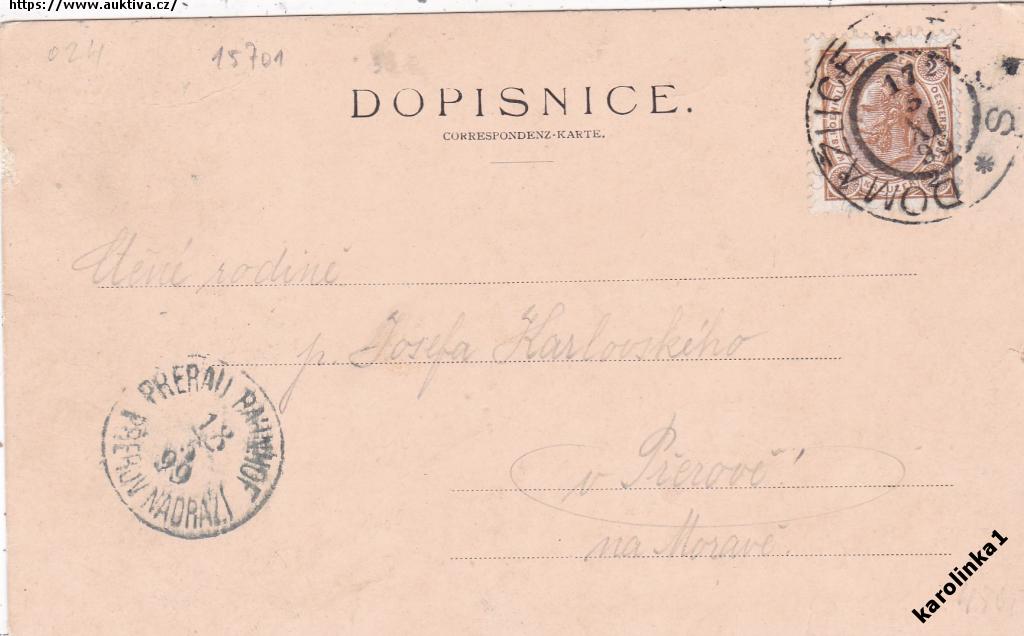 https://www.auktiva.cz/
024 15701
DOPISNICE.
CORRESPONDENZ-KARTE.
DOMAŽLICE
17
Ctěné rodině
p. Josefa Karlovského
v Přerově!
na Moravě.
PRERAU BAHNHOF
18
99
PŘEROV NÁDRAŽÍ
karolinka1